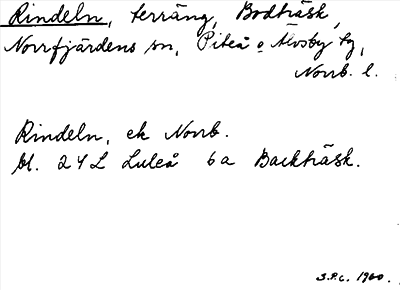 Rindeln, terräng, Bodträsk,
Norrfjärdens sn, Piteå o Älvsby tg,
Norrb. l.
Rindeln, ek Norrb.
bl. 24L Luleå 6a Backträsk.
S.P.C. 1960.